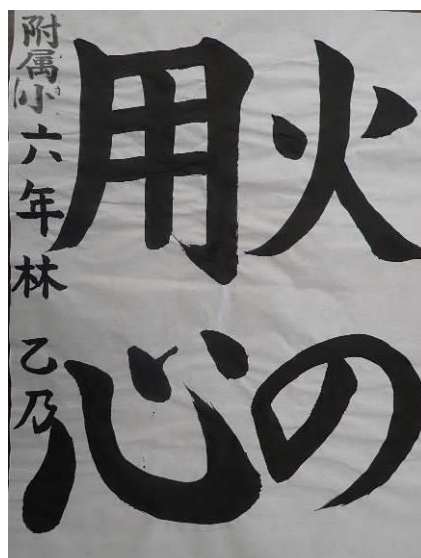 火の
用心
附属小六年林乙乃